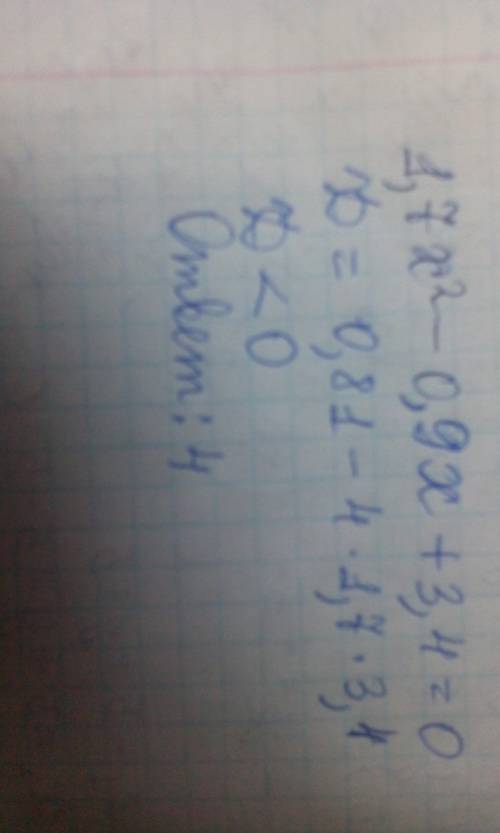 1,7x² - 0,9x + 3,4 = 0
D = 0,81 - 4 · 1,7 · 3,4
D < 0
Ответ: 4